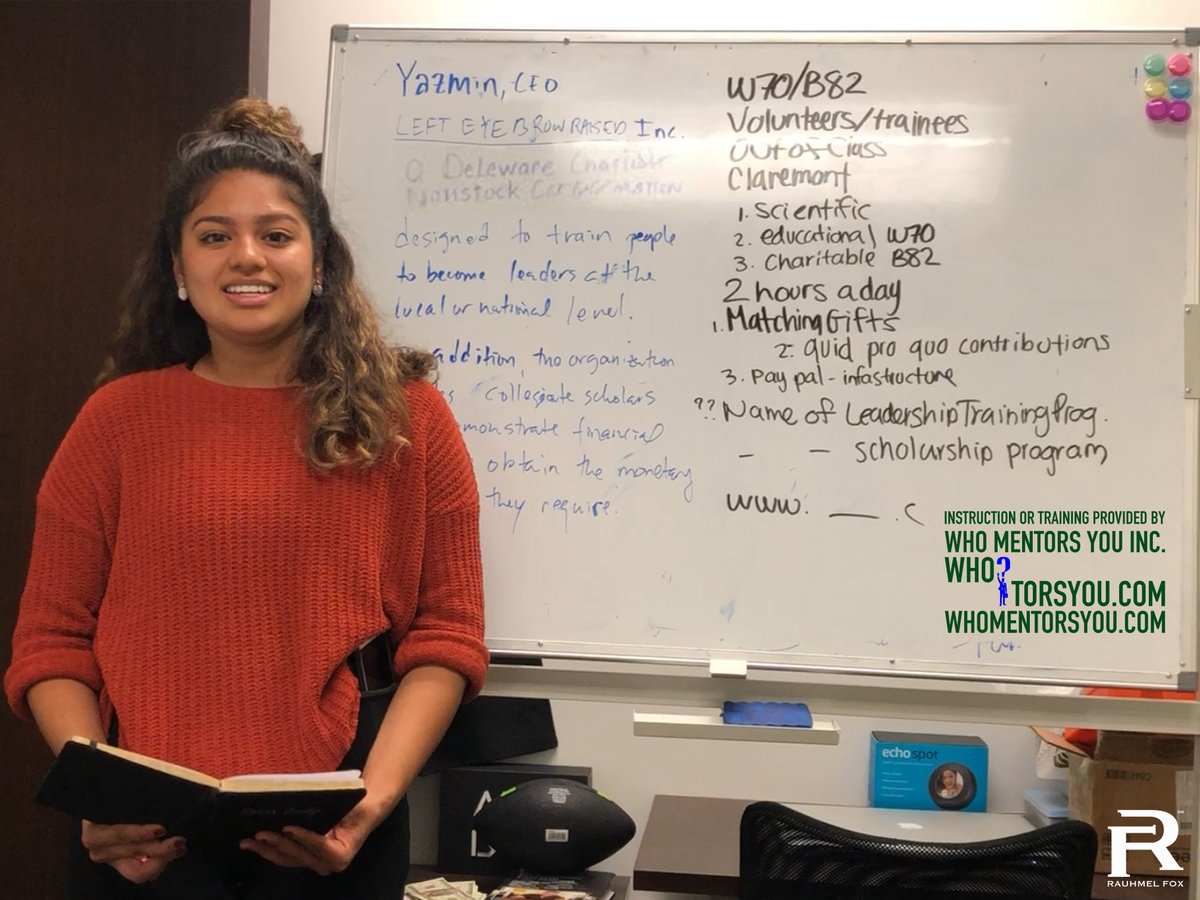 Yazmin, CEO
LEFT EYEBROW RAISED Inc.
A Deleware Charitable
Nonstock Corporation
designed to train people
to become leaders at the
local or national level.
addition, the organization
collegiate scholars
monstrate financial
obtain the monetary
they require.
W70/B82
Volunteers/trainees
Out of Class
Claremont
1. Scientific
2. educational W70
3. Charitable B82
2 hours a day
1. Matching Gifts
2. quid pro quo contributions
3. Pay pal - infastructure
?? Name of Leadership Training Prog.
- - scholarship program
www. __ .c
INSTRUCTION OR TRAINING PROVIDED BY
WHO MENTORS YOU INC.
WHO?TORSYOU.COM
WHOMENTORSYOU.COM
echo spot
R
RAUHMEL FOX